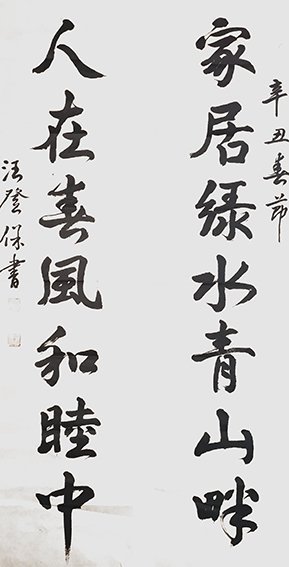 辛丑春节
家居绿水青山畔
人在春风和睦中
汪登保书